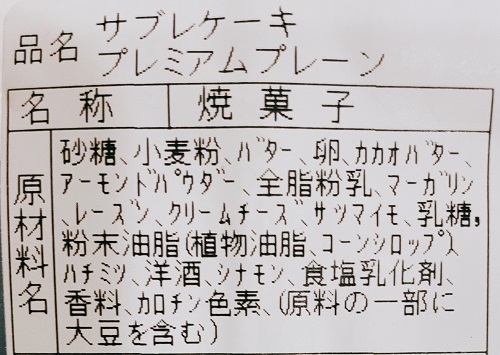 品名 サブレケーキ
プレミアムプレーン
名称 焼菓子
原材料名
砂糖、小麦粉、ﾊﾞﾀｰ、卵、ｶｶｵﾊﾞﾀｰ、
ｱｰﾓﾝﾄﾞﾊﾟｳﾀﾞｰ、全脂粉乳、ﾏｰｶﾞﾘﾝ
、ﾚｰｽﾞﾝ、ｸﾘｰﾑﾁｰｽﾞ、ｻﾂﾏｲﾓ、乳糖,
粉末油脂(植物油脂、ｺｰﾝｼﾛｯﾌﾟ)、
ﾊﾁﾐﾂ、洋酒、ｼﾅﾓﾝ、食塩乳化剤、
香料、ｶﾛﾁﾝ色素、(原料の一部に
大豆を含む)